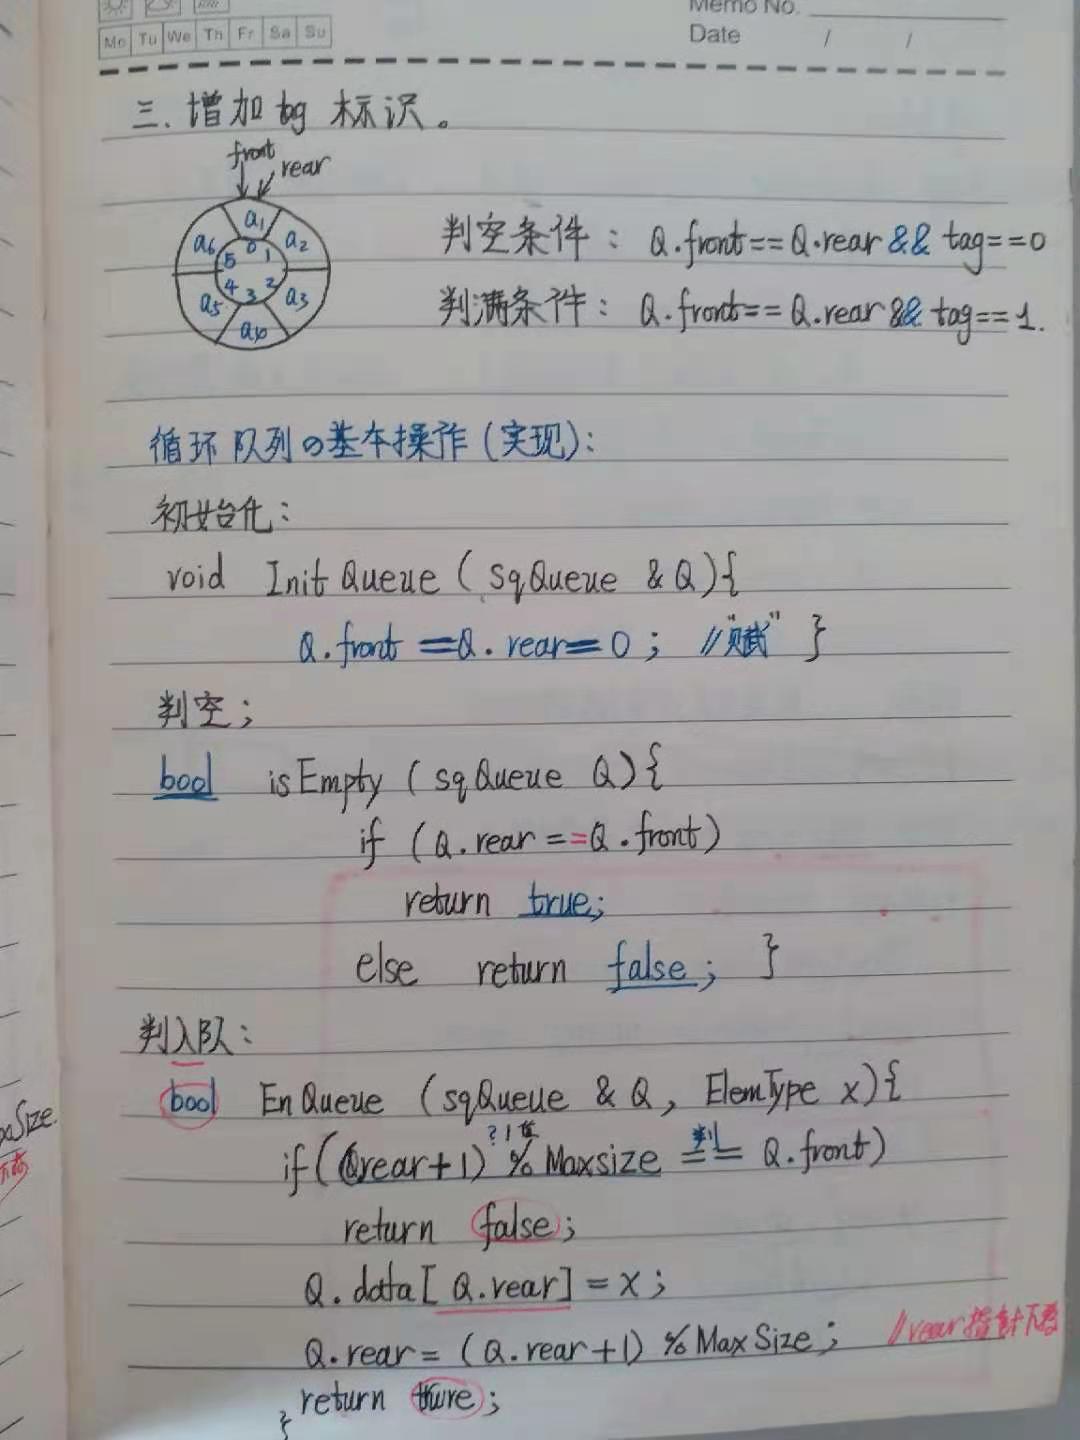 Memo No.
Mo Tu We Th Fr Sa Su
Date / /
三.增加tag 标识。
front
rear
a1
a2
a3
a4
a5
a6
0 1 2 3 4 5
判空条件：Q.front==Q.rear && tag==0
判满条件：Q.front==Q.rear && tag==1.
循环队列の基本操作(实现):
初始化:
void InitQueue (SqQueue & Q){
Q.front =Q.rear=0; //"赋" }
判空;
bool isEmpty (sqQueue Q){
if (Q.rear==Q.front)
return true;
else return false; }
判入队:
bool EnQueue (sqQueue & Q, ElemType x){
判
if((Qrear+1) %Maxsize == Q.front)
return false;
Q.data[Q.rear]=x;
Q.rear=(Q.rear+1) %MaxSize; //rear指针下移
return ture;
}
xSize.